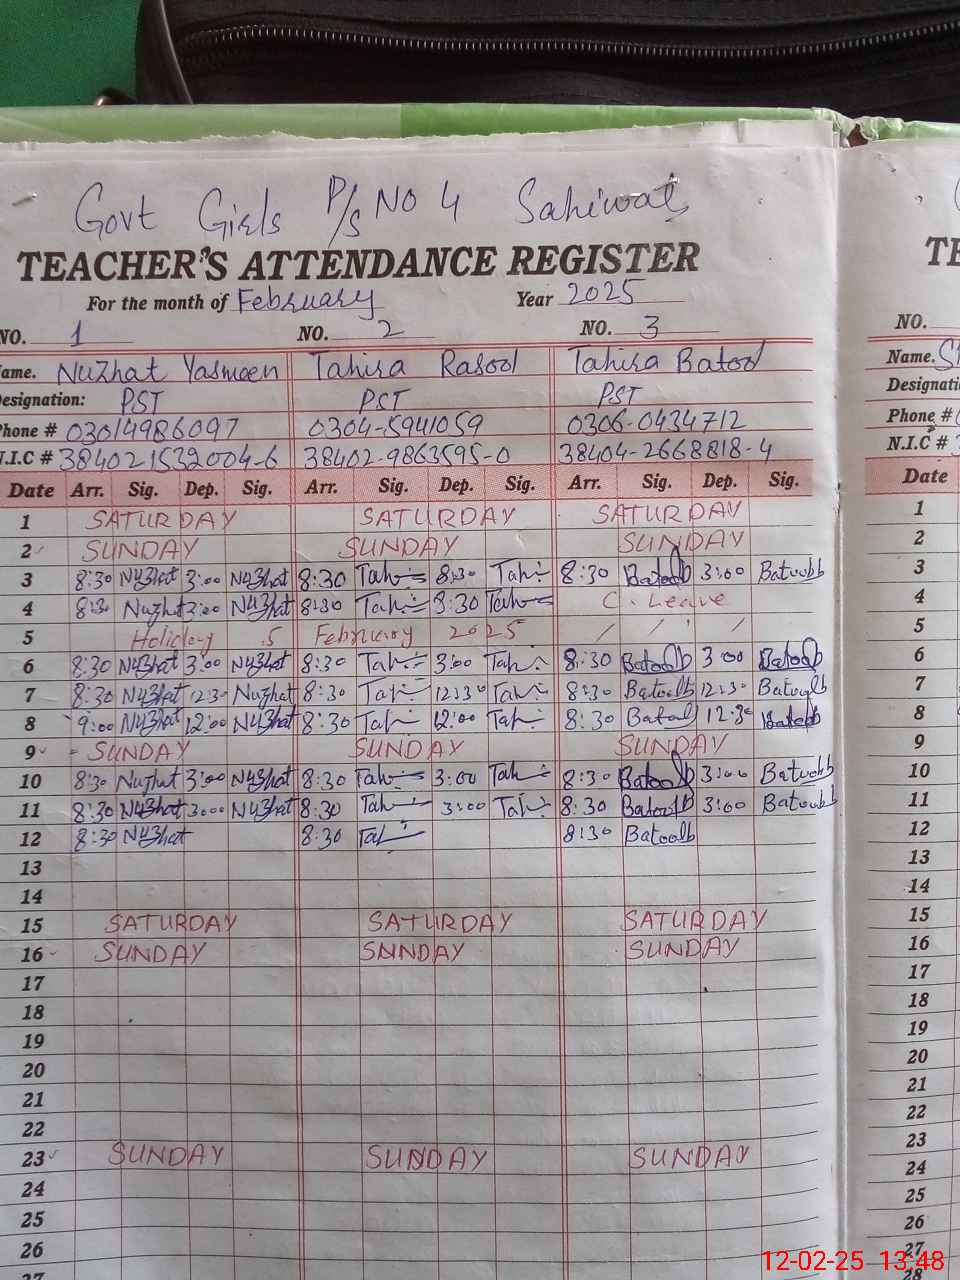 Govt Girls P/S No 4 Sahiwal
TEACHER'S ATTENDANCE REGISTER
For the month of February Year 2025
NO. 1 NO. 2 NO. 3 NO.
Name. Nuzhat Yasmeen Tahira Rasool Tahira Batool Name.
Designation: PST PST PST
Phone # 03014986097 0304-5941059 0306-0434712 Phone #
N.I.C # 384021532004-6 38402-9863595-0 38404-2668818-4 N.I.C #
Date Arr. Sig. Dep. Sig. Arr. Sig. Dep. Sig. Arr. Sig. Dep. Sig. Date
1 SATURDAY SATURDAY SATURDAY 1
2 SUNDAY SUNDAY SUNDAY 2
3 8:30 Nuzhat 3:00 Nuzhat 8:30 Tah 8:30 Tah 8:30 Batoolb 3:00 Batoolb 3
4 8:30 Nuzhat 3:00 Nuzhat 8:30 Tah 8:30 Tah C. Leave 4
5 Holiday 5 February 2025 / / / 5
6 8:30 Nuzhat 3:00 Nuzhat 8:30 Tah 3:00 Tah 8:30 Batoolb 3:00 Batoolb 6
7 8:30 Nuzhat 12:30 Nuzhat 8:30 Tah 12:30 Tah 8:30 Batoolb 12:30 Batoolb 7
8 9:00 Nuzhat 12:00 Nuzhat 8:30 Tah 12:00 Tah 8:30 Batool 12:30 Batoolb 8
9 SUNDAY SUNDAY SUNDAY 9
10 8:30 Nuzhat 3:00 Nuzhat 8:30 Tah 3:00 Tah 8:30 Batoolb 3:00 Batoolb 10
11 8:30 Nuzhat 3:00 Nuzhat 8:30 Tah 3:00 Tah 8:30 Batoolb 3:00 Batoolb 11
12 8:30 Nuzhat 8:30 Tah 8:30 Batoolb 12
13 13
14 14
15 SATURDAY SATURDAY SATURDAY 15
16 SUNDAY SUNDAY SUNDAY 16
17 17
18 18
19 19
20 20
21 21
22 22
23 SUNDAY SUNDAY SUNDAY 23
24 24
25 25
26 26
27 27
28
12-02-25 13:48